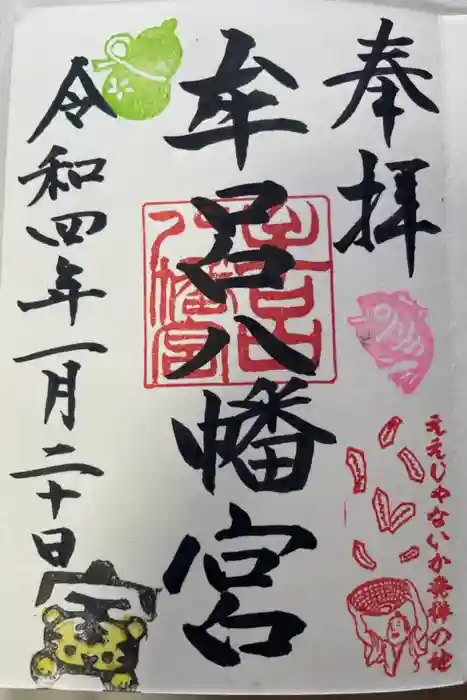 奉拝
ええじゃないか発祥の地
牟呂八幡宮
牟呂
八幡宮
令和四年一月二十日